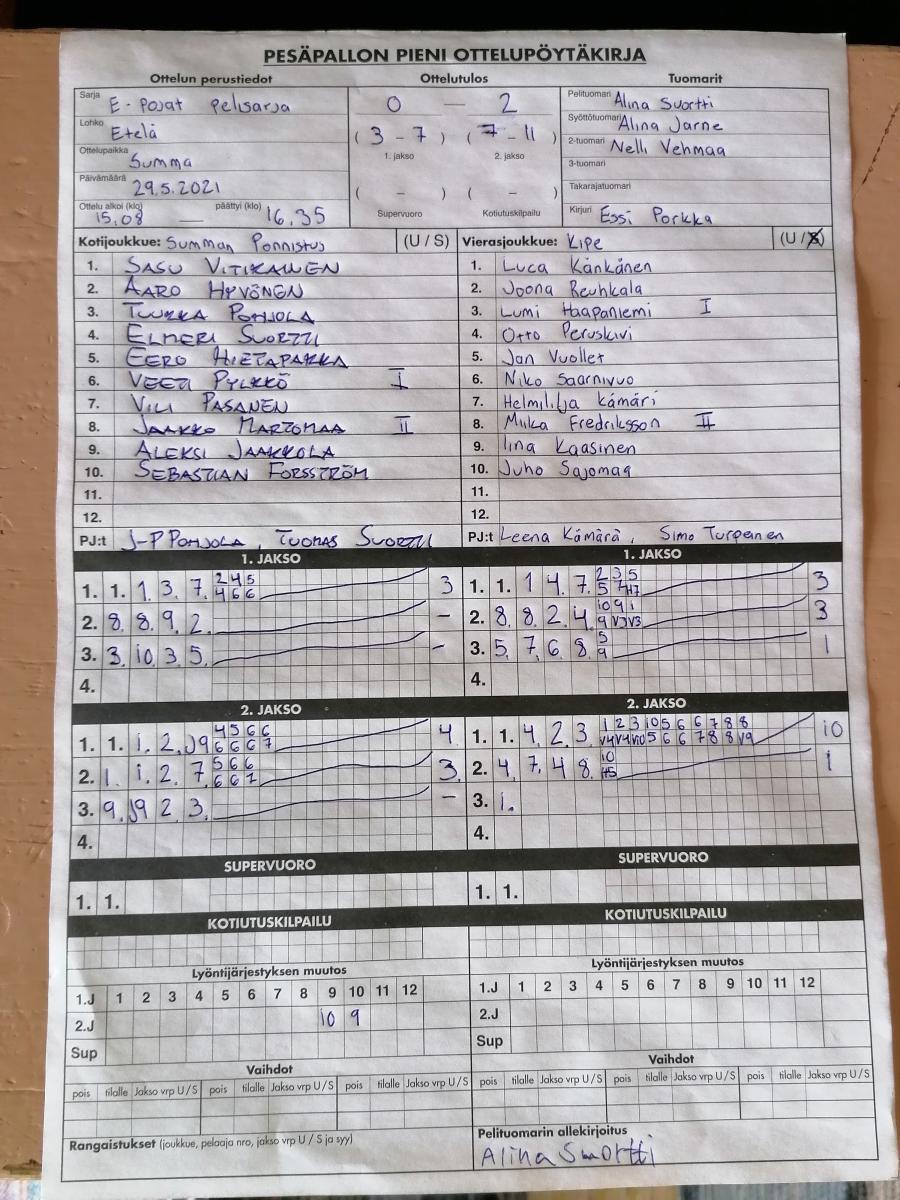 PESÄPALLON PIENI OTTELUPÖYTÄKIRJA
Ottelun perustiedot Ottelutulos Tuomarit
Sarja E-Pojat Pelisarja
Lohko Etelä
Ottelupaikka Summa
Päivämäärä 29.5.2021
Ottelu alkoi (klo) 15.08 — päättyi (klo) 16.35
0 — 2
( 3 - 7 ) ( 7 - 11 )
1. jakso 2. jakso
( - ) ( - )
Supervuoro Kotiutuskilpailu
Pelituomari Alina Suortti
Syöttötuomari Alina Jarne
2-tuomari Nelli Vehmaa
3-tuomari
Takarajatuomari
Kirjuri Essi Porkka
Kotijoukkue: Summan Ponnistus (U / S) Vierasjoukkue: Kipe (U / S)
1. SASU VITIKAINEN 1. Luca Känkänen
2. AARO HYVÖNEN 2. Joona Reuhkala
3. TUUKKA POHJOLA 3. Lumi Haapaniemi I
4. ELMERI SUORTTI 4. Otto Peruskivi
5. EERO HIETAPAKKA 5. Jan Vuollet
6. VEETI PYLKKÖ I 6. Niko Saarnivuo
7. VILI PASANEN 7. Helmililja Kämäri
8. JAAKKO MARTOMAA II 8. Miika Fredriksson II
9. ALEKSI JAAKKOLA 9. Iina Kaasinen
10. SEBASTIAN FORSSTRÖM 10. Juho Sajomaa
11. 11.
12. 12.
PJ:t J-P POHJOLA, TUOMAS SUORTTI PJ:t Leena Kämärä, Simo Turpeinen
1. JAKSO 1. JAKSO
2 4 5 2 3 5
1. 1. 1 3 7. 4 6 6 3 1. 1. 1 4 7. 5 7 H7 3
10 9 1
2. 8. 8. 9. 2. - 2. 8. 8 2 4. 9 V3 V3 3
5
3. 3. 10 3 5. - 3. 5. 7 6 8. 9 1
4. 4.
2. JAKSO 2. JAKSO
4 5 6 6 1 2 3 10 5 6 6 7 8 8
1. 1. 1. 2. J9 6 6 6 7 4 1. 1. 4 2 3. V4 V4 V10 5 6 6 7 8 8 V9 10
5 6 6 10
2. 1. 1. 2 7. 6 6 7 3 2. 4. 7 4 8. H5 1
3. 9. J9 2 3. - 3. 1.
4. 4.
SUPERVUORO SUPERVUORO
1. 1. 1. 1.
KOTIUTUSKILPAILU KOTIUTUSKILPAILU
Lyöntijärjestyksen muutos Lyöntijärjestyksen muutos
1.J 1 2 3 4 5 6 7 8 9 10 11 12 1.J 1 2 3 4 5 6 7 8 9 10 11 12
2.J 10 9 2.J
Sup Sup
Vaihdot Vaihdot
pois tilalle Jakso vrp U / S pois tilalle Jakso vrp U / S pois tilalle Jakso vrp U / S pois tilalle Jakso vrp U / S pois tilalle Jakso vrp U / S pois tilalle Jakso vrp U / S
Rangaistukset (joukkue, pelaaja nro, jakso vrp U / S ja syy) Pelituomarin allekirjoitus
Alina Suortti